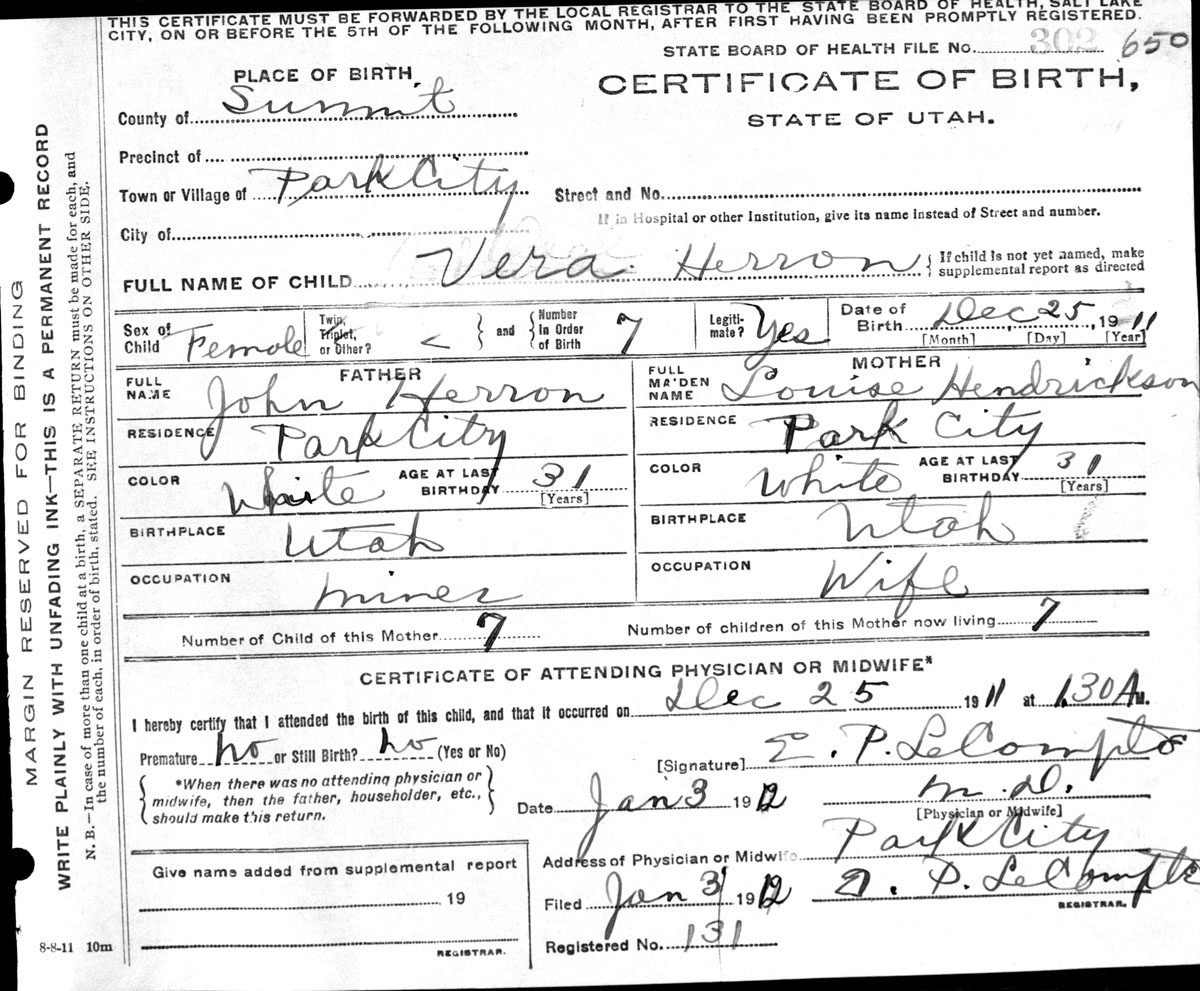 THIS CERTIFICATE MUST BE FORWARDED BY THE LOCAL REGISTRAR TO THE STATE BOARD OF HEALTH, SALT LAKE
CITY, ON OR BEFORE THE 5TH OF THE FOLLOWING MONTH, AFTER FIRST HAVING BEEN PROMPTLY REGISTERED.
STATE BOARD OF HEALTH FILE No. 302 650
PLACE OF BIRTH
CERTIFICATE OF BIRTH,
STATE OF UTAH.
County of Summit
Precinct of
Town or Village of Park City
Street and No.
If in Hospital or other Institution, give its name instead of Street and number.
City of
FULL NAME OF CHILD Vera Herron { If child is not yet named, make
supplemental report as directed
Sex of Child Female
Twin, Triplet, or Other? <
} and { Number in Order of Birth 7
Legiti-mate? Yes
Date of Birth Dec 25, 1911
[Month] [Day] [Year]
FATHER
FULL NAME John Herron
RESIDENCE Park City
COLOR White AGE AT LAST BIRTHDAY 31
[Years]
BIRTHPLACE Utah
OCCUPATION miner
MOTHER
FULL MAIDEN NAME Louise Hendrickson
RESIDENCE Park City
COLOR White AGE AT LAST BIRTHDAY 31
[Years]
BIRTHPLACE Utah
OCCUPATION Wife
Number of Child of this Mother 7
Number of children of this Mother now living 7
CERTIFICATE OF ATTENDING PHYSICIAN OR MIDWIFE*
I hereby certify that I attended the birth of this child, and that it occurred on Dec 25 1911 at 1.30 A M.
Premature no or Still Birth? no (Yes or No)
[Signature] E. P. LeCompte
{ *When there was no attending physician or
midwife, then the father, householder, etc.,
should make this return. }
Date Jan 3 1912
M.D.
[Physician or Midwife]
Address of Physician or Midwife Park City
Filed Jan 3 1912 E. P. LeCompte
REGISTRAR.
Registered No. 131
Give name added from supplemental report
19
REGISTRAR.
8-8-11 10m
MARGIN RESERVED FOR BINDING
WRITE PLAINLY WITH UNFADING INK—THIS IS A PERMANENT RECORD
N. B.—In case of more than one child at a birth, a SEPARATE RETURN must be made for each, and
the number of each, in order of birth, stated. SEE INSTRUCTIONS ON OTHER SIDE.